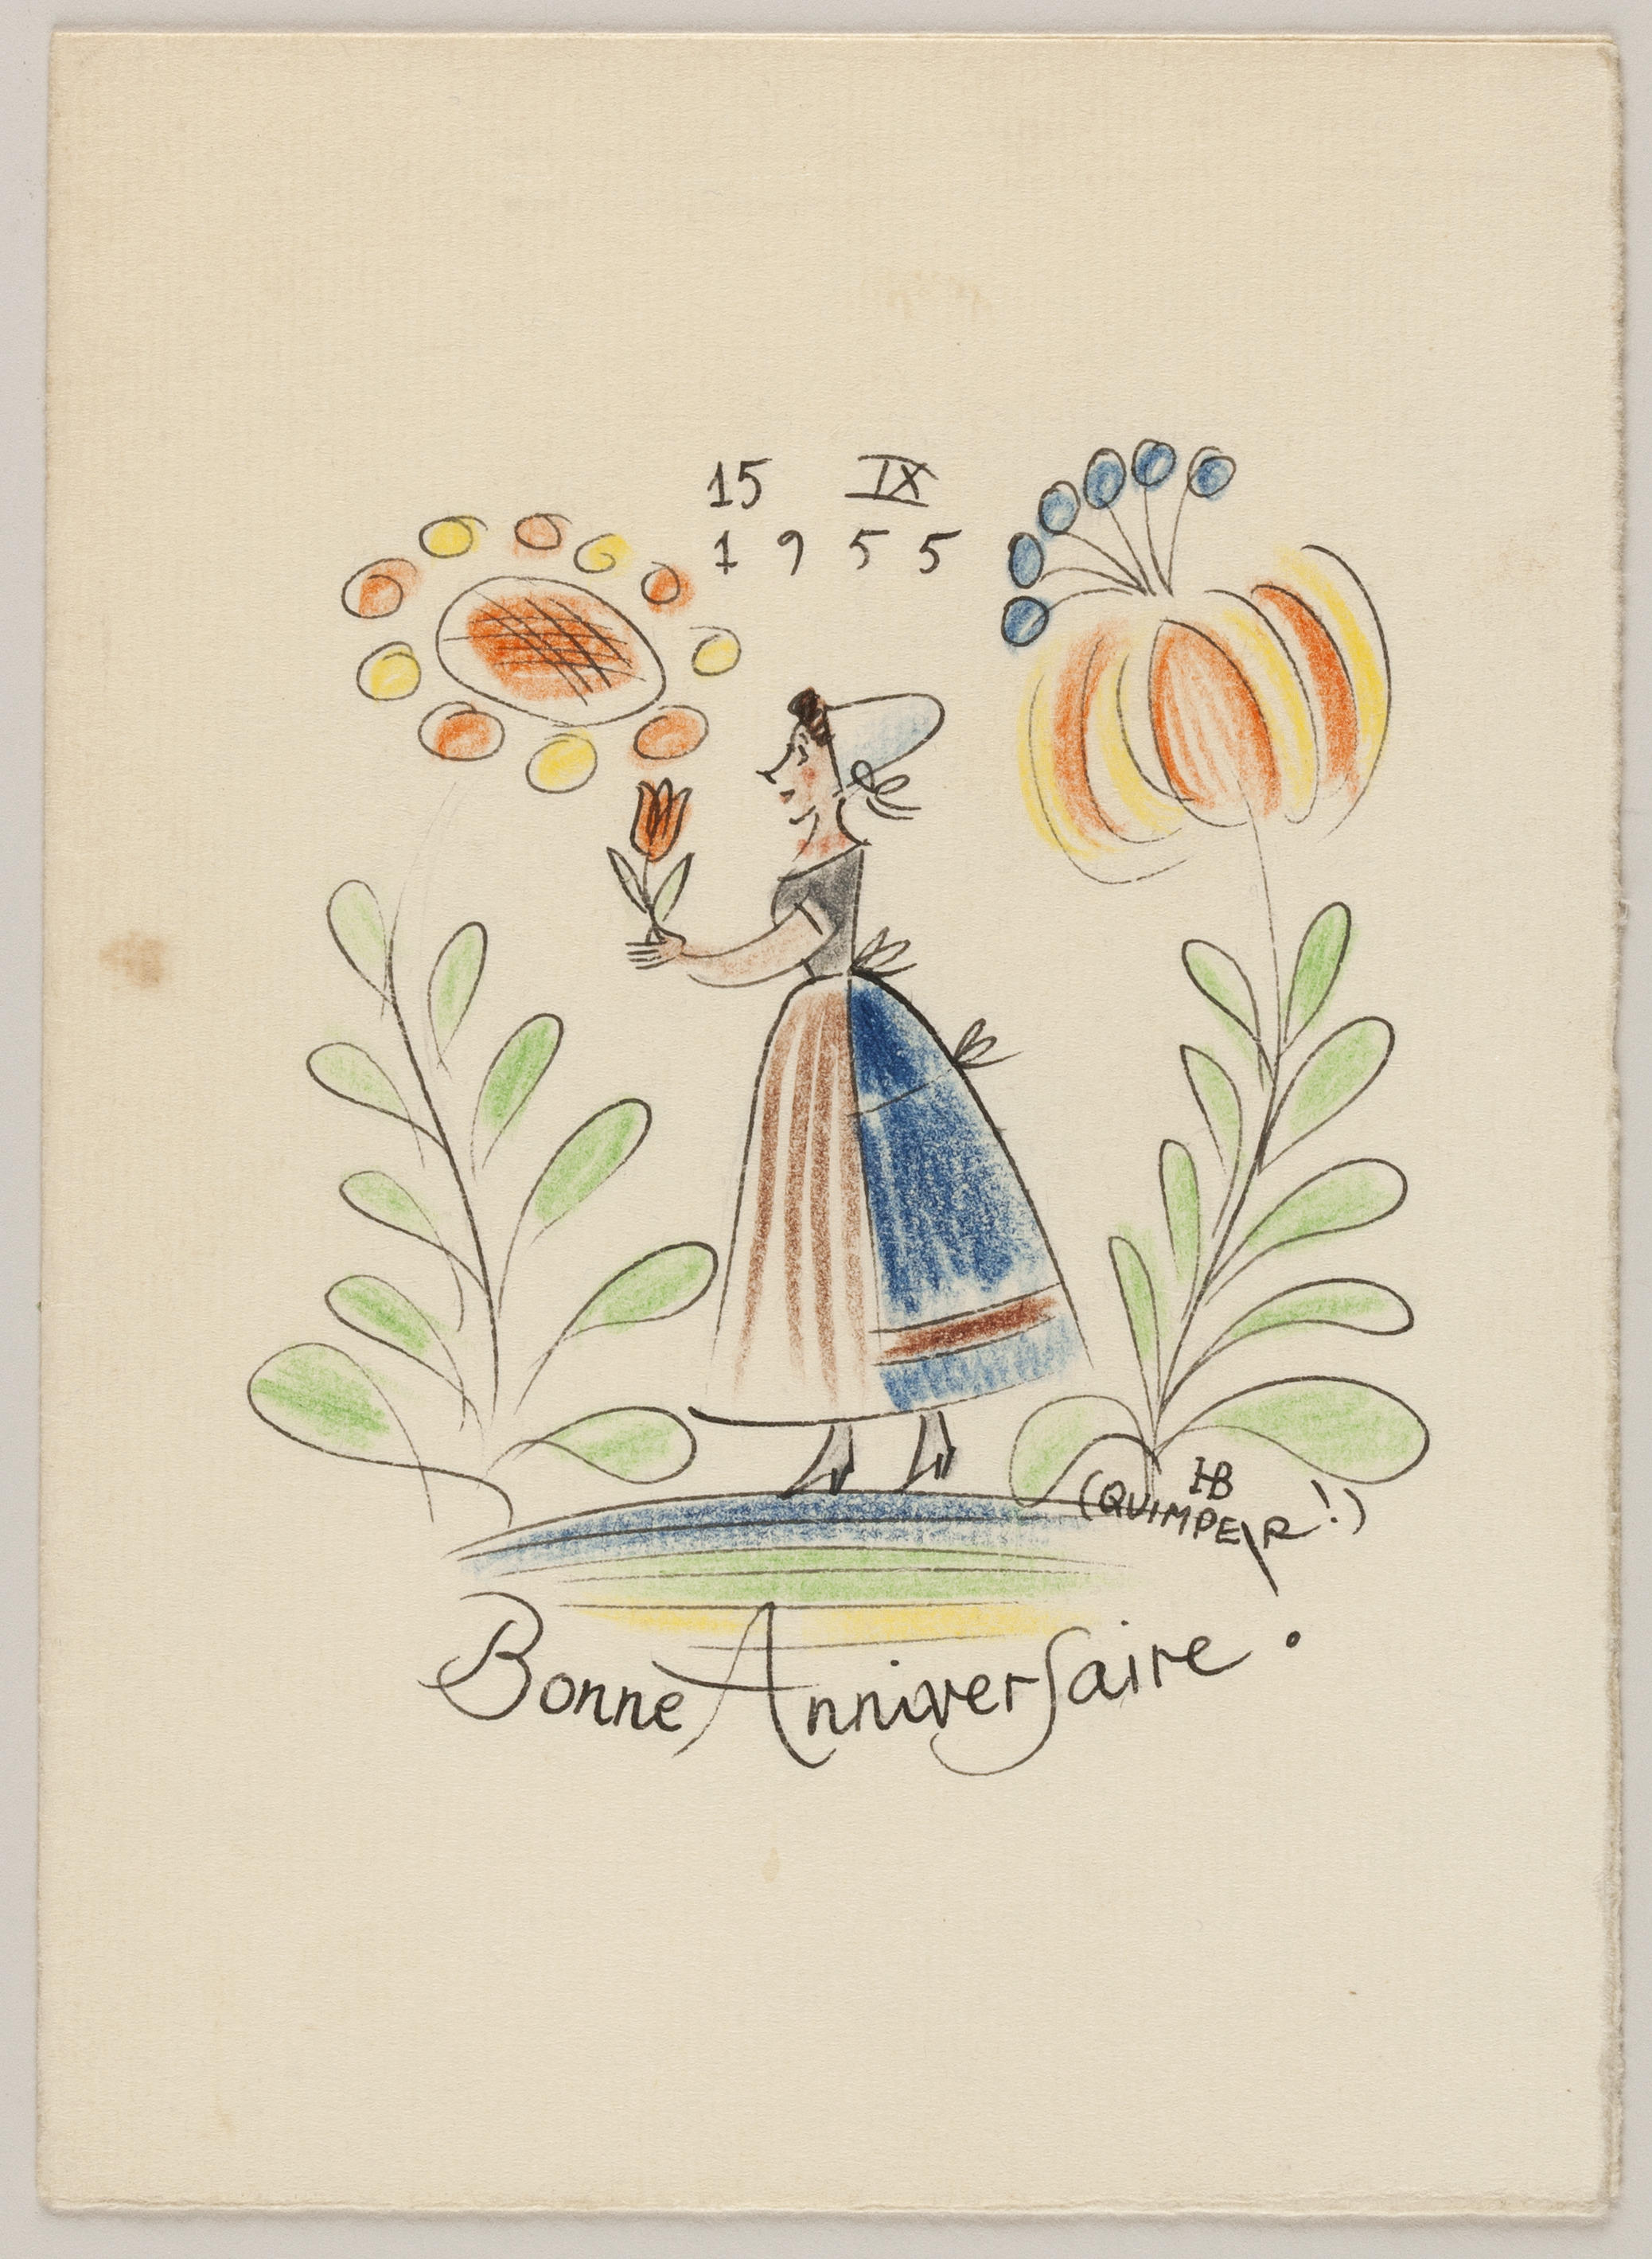 15 IX
1955
HB
(QUIMPER!)
Bonne Anniversaire.